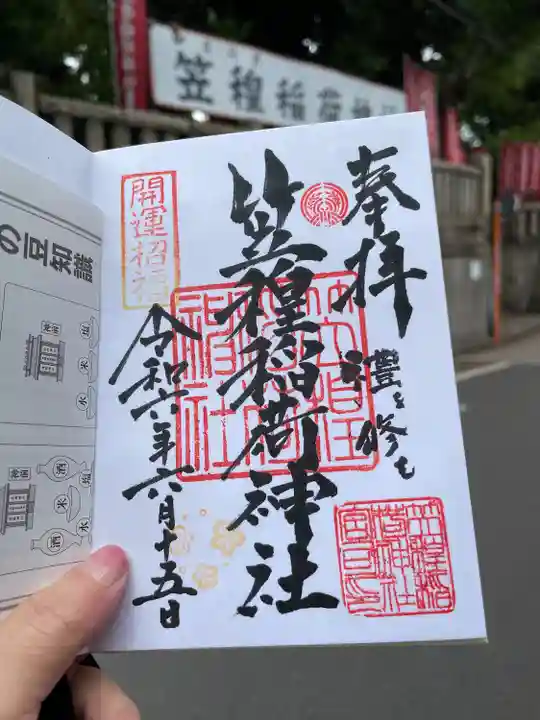 笠䅣稲荷神社
奉拝
禮を修む
笠䅣稲荷神社
開運招福
令和六年六月十五日
笠䅣稲荷神社
の豆知識
酒
米
水
塩